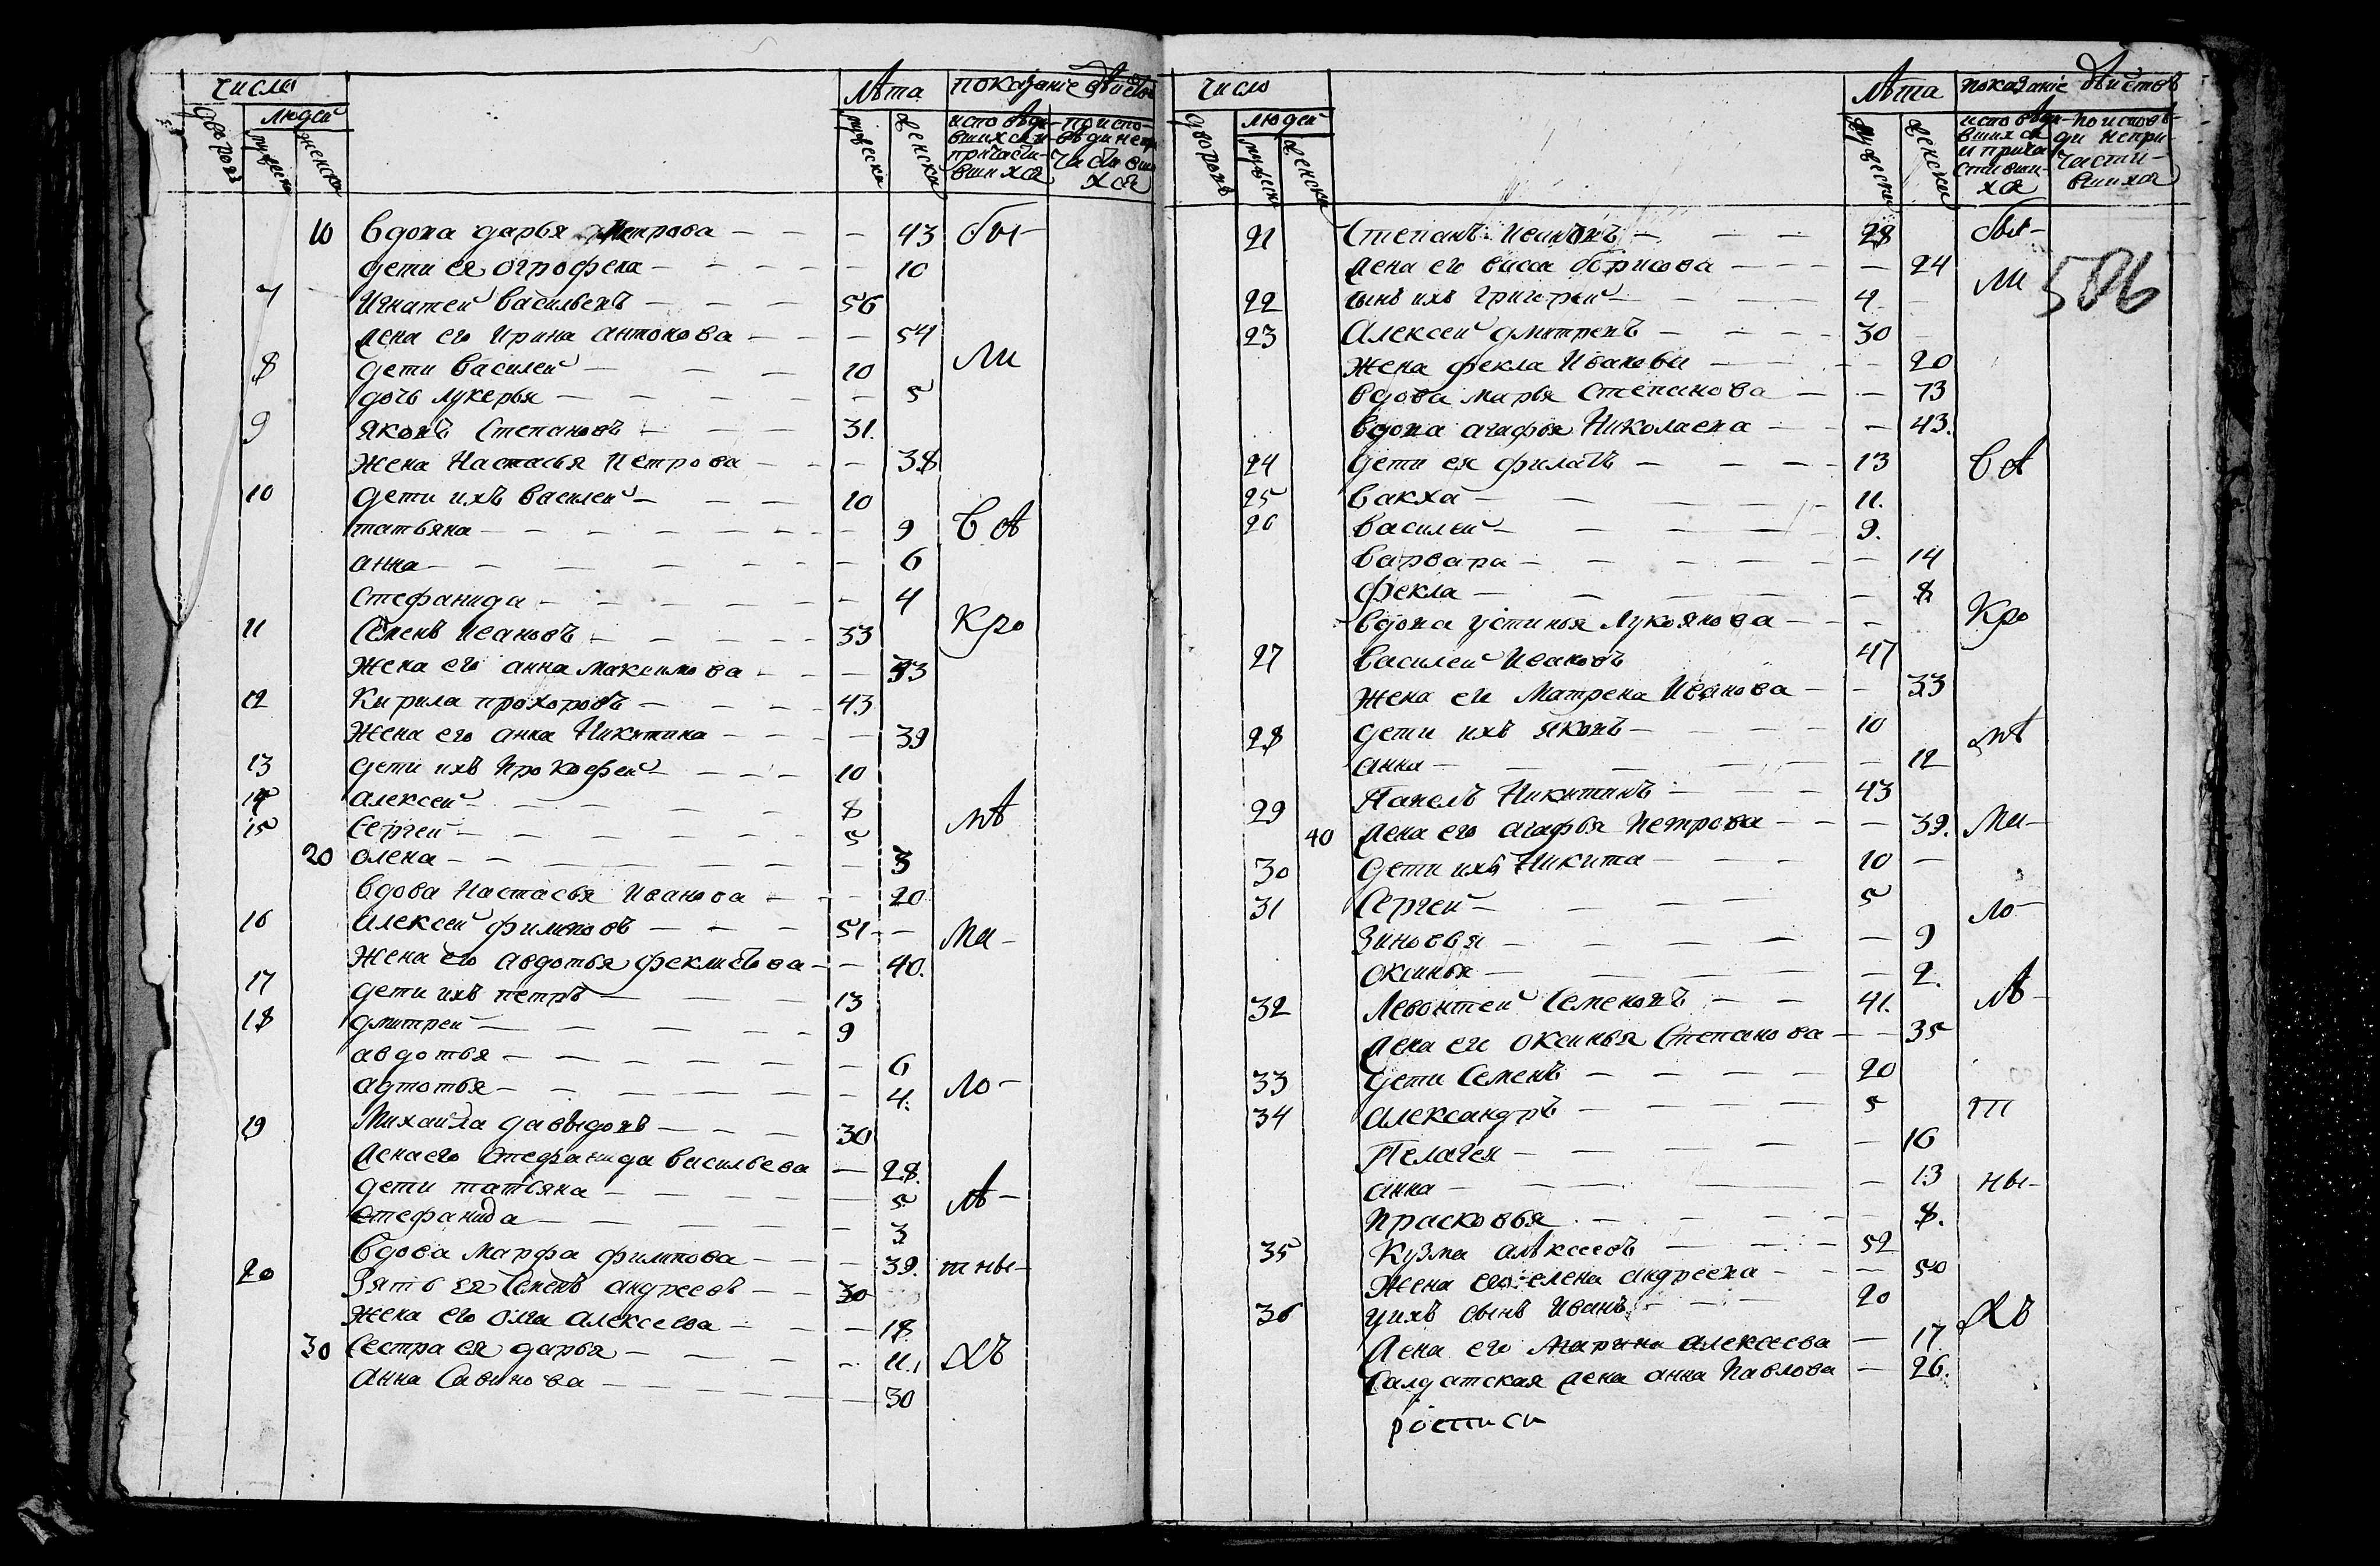 числа лѣта показание действ
людей исповедавшихся и причастившихся по исповеди не причастившихся
дворовъ мужеска женска мужеска женска
10 вдова дарья дмитрова — 43 бы-
дети ея огрофена — 10
7 Игнатеи васильевъ — 56
жена его Ирина антонова — 54
ли
8 дети василеи — 10
дочь лукерья — 5
9 яковъ Степановъ — 31.
жена Настасья Петрова — 38
10 дети ихъ василеи — 10
татьяна — 9 вѣ
анна — 6
Стефанида — 4
Кро
11 Семенъ ивановъ — 33
жена его анна максимова — 33
12 Кирила прохоровъ — 43
жена его анна Никитина — 39
13 дети ихъ Прокофеи — 10
14 алексеи — 8
мѣ
15 Сергеи — 5
20 олена — 3
вдова Настасья Иванова — 20
16 алексеи филиповъ — 51
Ма-
жена его авдотья феклистова — 40.
17 дети ихъ петръ — 13
18 дмитреи — 9
авдотья — 6
адтотья — 4. ло-
19 Михаила давыдовъ — 30
жена его Стефанида васильева — 28.
дети татьяна — 5 лѣ-
Стефанида — 3
вдова Марфа филипова — 39. тны-
20 Зять ея Семенъ андреевъ — 30
жена его олга алексеева — 18
30 Сестра ея дарья — 11. хъ
анна Савинова — 30
число лѣта показание действъ
людей исповедавшихся и причастившихся по исповеди не причастившихся
дворовъ мужеска женска мужеска женска
21 Степанъ ивановъ — 28 бы-
жена его васса борисова — 24
ли 506
22 сынъ ихъ григореи — 4
23 Алексеи дмитревъ — 30
жена фекла Иванова — 20
вдова марья Степанова — 73
вдова агафья Николаева — 43.
24 дети ея филатъ — 13 вѣ
25 вакха — 11.
26 василеи — 9.
варвара — 14
фекла — 8
вдова устинья Лукоянова — Кро
27 василеи Ивановъ 47
жена ег Матрена Иванова — 33
28 дети ихъ яковъ — 10
мѣ
анна — 12
29 Павелъ Никитинъ — 43
40 жена его агафья Петрова — 39. Ма-
30 дети ихъ Никита — 10
31 Сергеи — 5
ло-
Зиновья — 9
оксинья — 2.
32 Левонтеи Семеновъ — 41. лѣ-
жена ег оксинья Степанова — 35
33 дети Семенъ — 20
34 александръ — 5 т
Пелагея — 16
анна — 13 ны-
Прасковья — 8.
35 Кузма алѣксеевъ — 52
жена его елена андреева — 50
36 у ихъ сынъ Иванъ — 20
хъ
жена ег Марина алексеева — 17
Салдатская жена анна Павлова — 26.
росписи